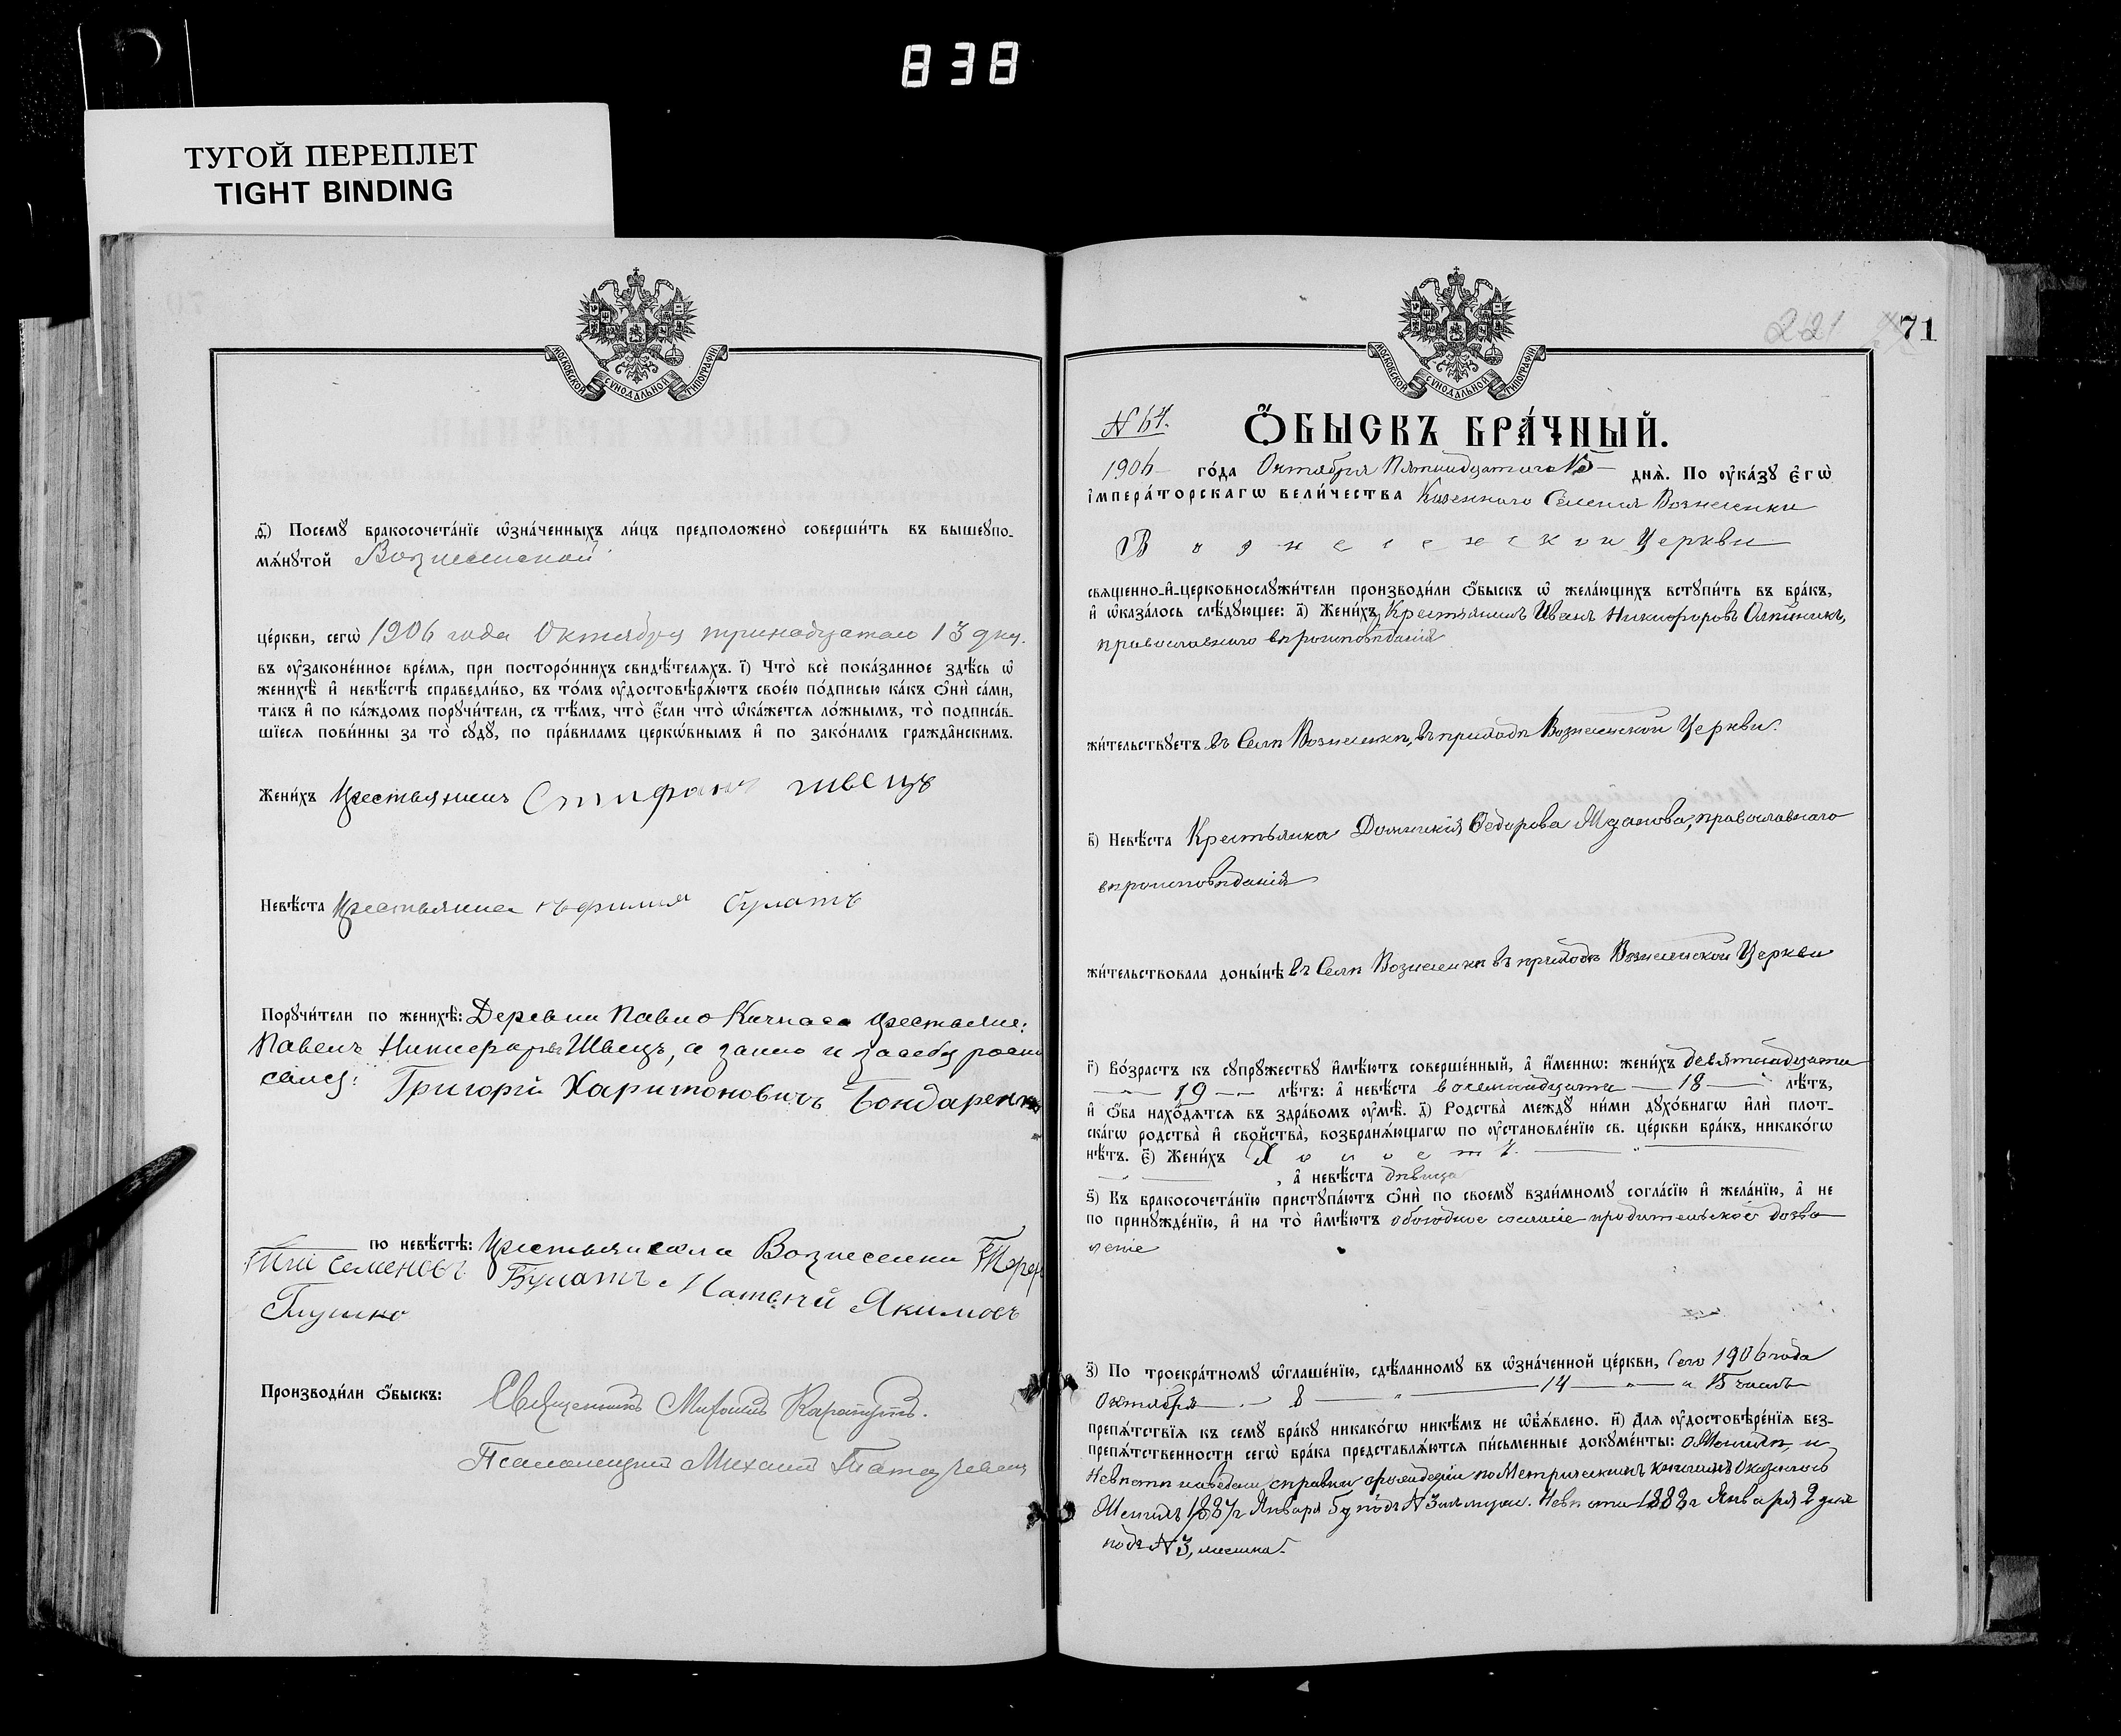 838
ТУГОЙ ПЕРЕПЛЕТ
TIGHT BINDING
МОСКОВСКОЙ СУНОДАЛЬНОЙ ТИПОГРАФІИ
ѳ҃) Посемꙋ̀ бракосочета́нїе ѡ҆зна́ченныхъ ли́цъ предположено̀ соверши́ть въ вышеꙋпо-
мѧ́нꙋтой Вознесенской
це́ркви, сегѡ̀ 1906 года Октября тринадцатаго 13 дня.
въ оу҆законе́нное вре́мѧ, при посторо́ннихъ свидѣ́телѧхъ. і҃) Что̀ всѐ пока́занное здѣ́сь ѡ҆
женихѣ̀ и҆ невѣ́стѣ справедли́во, въ то́мъ оу҆достовѣрѧ́ютъ свое́ю по́дписью ка́къ ѻ҆нѝ са́ми,
та́къ и҆ по ка́ждомъ порꙋчи́тели, съ тѣ́мъ, что̀ є҆́сли что̀ ѡ҆ка́жетсѧ ло́жнымъ, то̀ подписа́в-
шїесѧ пови́нны за то̀ сꙋдꙋ̀, по пра́виламъ церкѡ́внымъ и҆ по зако́намъ гражда̂нскимъ.
Жени́хъ Крестьянинъ Стифанъ швецъ
Невѣ́ста Крестьянка булатъ
Порꙋчи́тели по женихѣ̀: Деревни Павло Кичкаса крестьяне:
Павелъ Швецъ, а за него и за себя роспи
сался: Григорій Харитоновичъ Бондаренк
по невѣ́стѣ: Крестьяни села Вознесенки Терен
тій Семеновъ Булатъ и Матвей Якимовъ
Глушко
Производи́ли ѻ҆́быскъ: Священникъ Михаилъ
Псаломщикъ Михаилъ
МОСКОВСКОЙ СУНОДАЛЬНОЙ ТИПОГРАФІИ
221 71
N 64.
Ѻ҆́БЫСКЪ БРА́ЧНЫЙ.
1906 го́да Октября Пятнадцатаго 15 днѧ̀. По оу҆ка́зꙋ Є҆гѡ̀
і҆мпера́торскагѡ вели́чества Казеннаго Селения Вознесенки
Вознесенской Церкви
свѧще́нно-и҆-церковнослꙋжи́тели производи́ли ѻ҆́быскъ ѡ҆ жела́ющихъ встꙋпи́ть въ бра́къ,
и҆ ѡ҆каза́лось слѣ́дꙋющее: а҃) Жени́хъ Крестьянинъ Иванъ Никифоровъ
православнаго вероисповѣданія
жи́тельствꙋетъ въ Селѣ Вознесенкѣ, въ приходѣ Вознесенской Церкви.
в҃) Невѣ́ста Крестьянка Домникія Ѳедорова православнаго
вѣроисповѣданія
жи́тельствовала доны́нѣ въ Селѣ Вознесенкѣ въ приходѣ Вознесенской Церкви
г҃) Во́зрастъ къ сꙋпрꙋ́жествꙋ и҆мѣ́ютъ соверше́нный, а҆ и҆́меннѡ: жени́хъ девятнадцати
19 лѣ́тъ: а҆ невѣ́ста восемнадцати 18 лѣ́тъ,
и҆ ѻ҆́ба нахо́дѧтсѧ въ здра́вомъ оу҆мѣ̀. д҃) Родства̀ междꙋ̀ ни́ми дꙋхо́внагѡ и҆лѝ плот-
ска́гѡ родства̀ и҆ сво́йства̀, возбранѧ́ющагѡ по оу҆становле́нїю св. це́ркви бра́къ, никако́гѡ
нѣ́тъ. є҃) Жени́хъ Холостъ.
, а҆ невѣ́ста дѣвица
ѕ҃) Къ бракосочета́нїю пристꙋпа́ютъ ѻ҆нѝ по своемꙋ̀ взаи́мномꙋ согла́сїю и҆ жела́нїю, а҆ не
по принꙋжде́нїю, и҆ на то̀ и҆мѣ́ютъ обоюдное согласіе и родительское дозво
ленїе
з҃) По троекра́тномꙋ ѡ҆глаше́нїю, сдѣ́ланномꙋ въ ѡ҆зна́ченной це́ркви, сего 1906 года
Октября 8 14 и 15 чиселъ
препѧ́тствїѧ къ семꙋ̀ бра́кꙋ никако́гѡ никѣ́мъ не ѡ҆б̾ѧ́влено. и҃) Длѧ оу҆достовѣре́нїѧ без-
препѧ́тственности сегѡ̀ бра́ка представлѧ́ютсѧ пи́сьменные докꙋме́нты: о Женихѣ и
Невѣстѣ наведены справки по Метрическимъ книгамъ Оказалось
Жениха 1887 г Января 5 подъ N 3 Невѣста 1888 г Января 2 дня
подъ N 3,